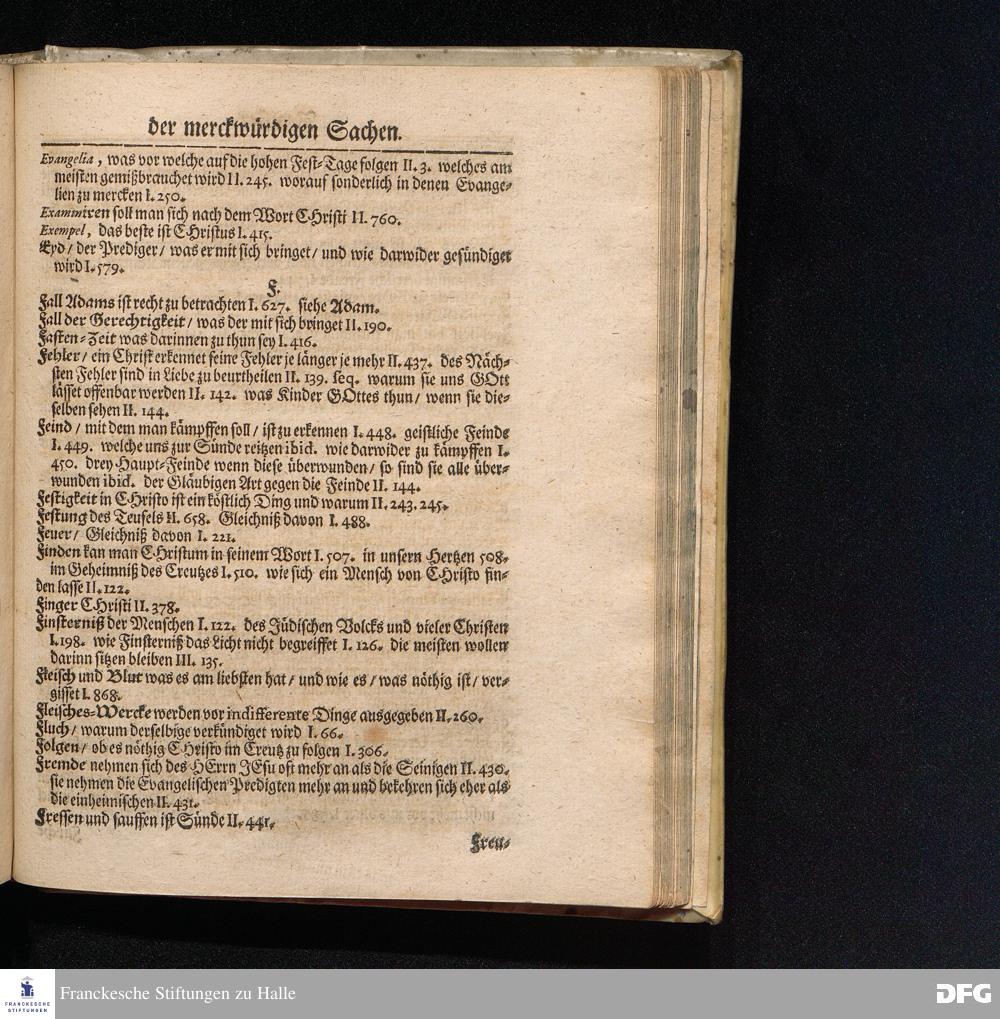 der merckwürdigen Sachen.
Evangelia, was vor welche auf die hohen Fest-Tage folgen II. 3. welches am
meisten gemißbrauchet wird II. 245. worauf sonderlich in denen Evange-
lien zu mercken I. 250.
Examiniren soll man sich nach dem Wort CHristi II. 760.
Exempel, das beste ist CHristus I. 415.
Eyd / der Prediger / was er mit sich bringet / und wie darwider gesündiget
wird I. 579.
F.
Fall Adams ist recht zu betrachten I. 627. siehe Adam.
Fall der Gerechtigkeit / was der mit sich bringet II. 190.
Fasten-Zeit was darinnen zu thun sey I. 416.
Fehler / ein Christ erkennet seine Fehler je länger je mehr II. 437. des Näch-
sten Fehler sind in Liebe zu beurtheilen II. 139. seq. warum sie uns GOtt
lässet offenbar werden II. 142. was Kinder GOttes thun / wenn sie die-
selben sehen II. 144.
Feind / mit dem man kämpffen soll / ist zu erkennen I. 448. geistliche Feinde
I. 449. welche uns zur Sünde reitzen ibid. wie darwider zu kämpffen I.
450. drey Haupt-Feinde wenn diese überwunden / so sind sie alle über-
wunden ibid. der Gläubigen Art gegen die Feinde II. 144.
Festigkeit in CHristo ist ein köstlich Ding und warum II. 243. 245.
Festung des Teufels II. 658. Gleichniß davon I. 488.
Feuer / Gleichniß davon I. 221.
Finden kan man CHristum in seinem Wort I. 507. in unsern Hertzen 508.
im Geheimniß des Creutzes I. 510. wie sich ein Mensch von CHristo fin-
den lasse II. 122.
Finger CHristi II. 378.
Finsterniß der Menschen I. 122. des Jüdischen Volcks und vieler Christen
I. 198. wie Finsterniß das Licht nicht begreiffet I. 126. die meisten wollen
darinn sitzen bleiben III. 135.
Fleisch und Blut was es am liebsten hat / und wie es / was nöthig ist / ver-
gisset I. 868.
Fleisches-Wercke werden vor indifferente Dinge ausgegeben II. 260.
Fluch / warum derselbige verkündiget wird I. 66.
Folgen / ob es nöthig CHristo im Creutz zu folgen I. 306.
Fremde nehmen sich des HErrn JEsu oft mehr an als die Seinigen II. 430.
sie nehmen die Evangelischen Predigten mehr an und bekehren sich eher als
die einheimischen II. 431.
Fressen und sauffen ist Sünde II. 441.
Freu-
FRANCKESCHE
STIFTUNGEN
Franckesche Stiftungen zu Halle
DFG